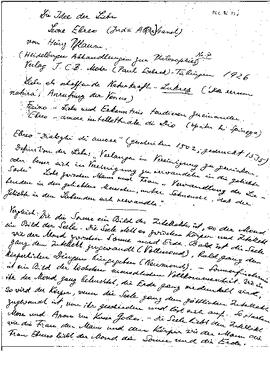 Die Idee der Liebe
Leone Ebreo (Juda Abarbanel)
von Heinz Pflaum.
(Heidelberger Abhandlungen zur Philosophie) No 7
Verlag J. C. B. Mohr (Paul Siebeck) Tübingen 1926
Liebe als schaffende Naturkraft – Lukrez (De rerum
natura, Anrufung der Venus)
Ficino – Liebe und Erkenntnis
Ebreo – (später bei Spinoza)
Ebreo "Dialoghi di amore" (geschrieben 1502, gedruckt 1535)
Definition der Liebe: Verlangen in Vereinigung zu genießen
oder besser sich in Vereinigung zu verwandeln in die geliebte
Liebe zwischen Mann und Frau – Verwandlung der
in den geliebten Menschen, unter Sehnsucht, daß der
Geliebte in den Liebenden sich verwandle.
Vergleich: Wie die Sonne ein Bild des Intellekts ist, so ist der Mond
ein Bild der Seele. Die Seele steht zwischen Körper und Intellekt
wie der Mond zwischen Sonne und Erde. Bald ist die Seele
ganz dem Intellekt zugewandt (Vollmond), bald ganz den
körperlichen Dingen hingegeben (Neumond). – Sonnenfinsternis
ist ein Bild der
der Mond ganz beleuchtet, die Erde ganz verdunkelt wird,
so wird der Körper, wenn die Seele ganz dem göttlichen Intellekt
zugewandt ist, von ihr geschieden und löst sich auf. So starben
Mose und Aron im Kuss Gottes. – Die Seele liebt den Intellekt
wie die Frau den Mann und den Körper wie die Mutter
Frau Ebreo liebt der Mond die Sonne und die Erde.